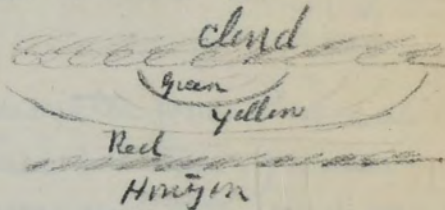 cloud
green
yellow
Red
Horizon